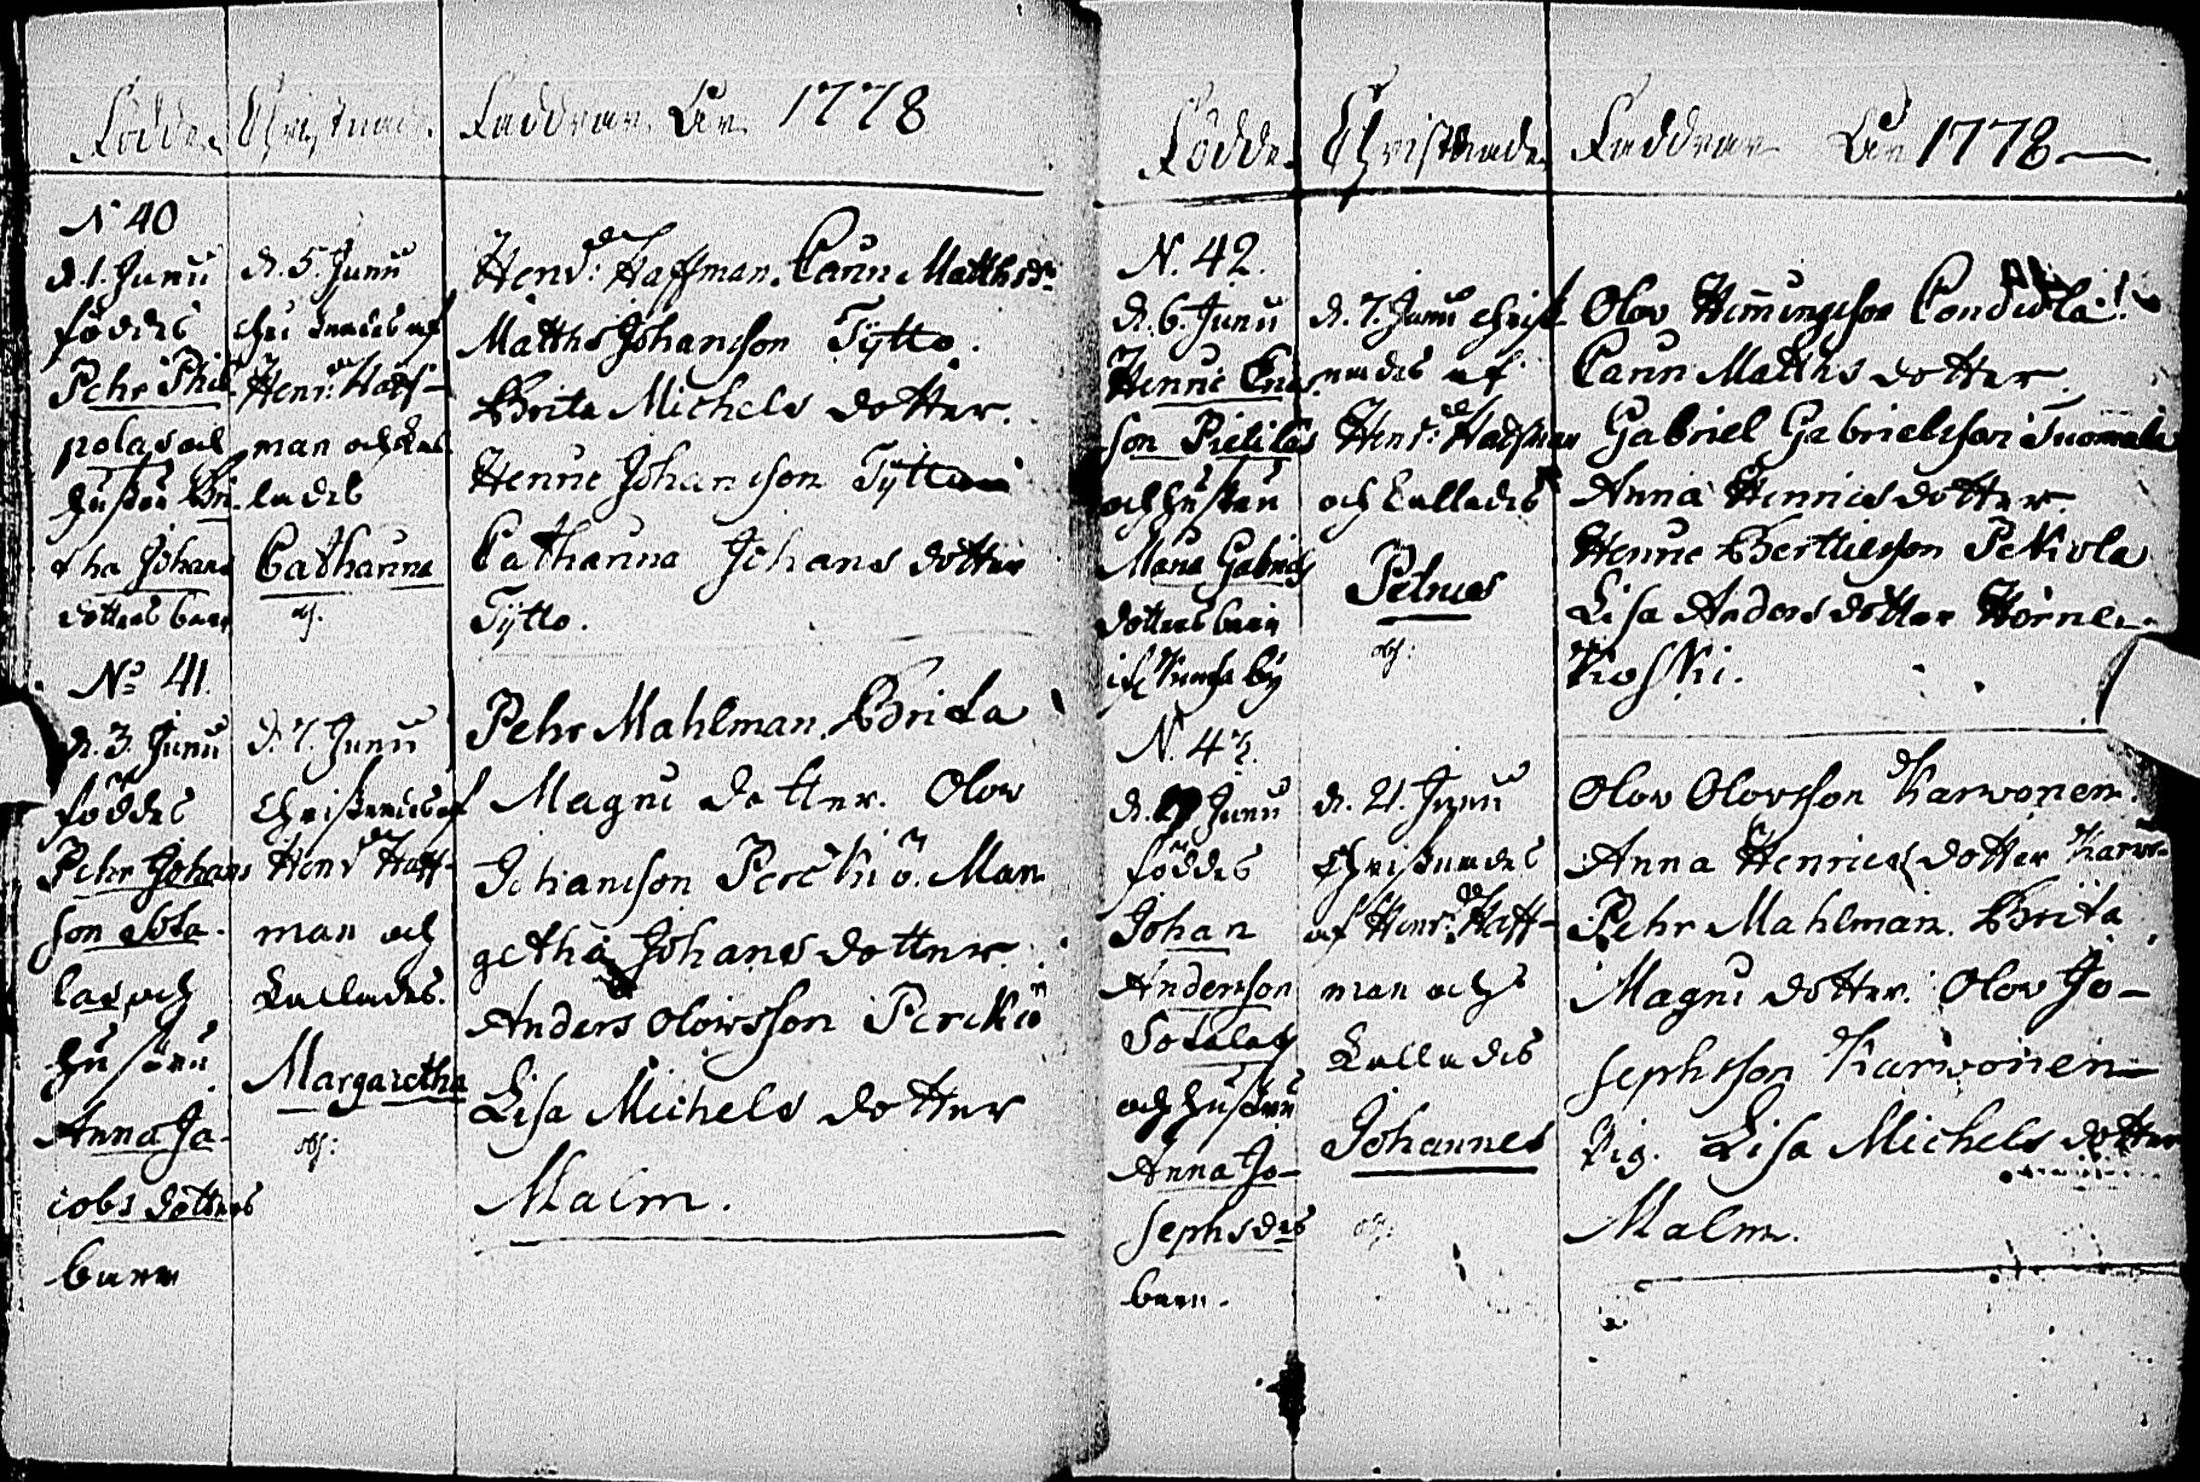 Födde. Christnade. Faddrar. Åhr 1778
N 40
d. 1. Junii
föddes
Pehr Phil
polas och
hustru Bri
tha Johans
dotters barn
d. 5. Junii
christnades af
Henr: Haff-
man och kal
lades
Catharina
Hend: Haffman. Carin Matthsdr
Matths Johansson Tÿtto.
Brita Michels dotter.
Henric Johansson Tÿtto
Catharina Johans dotter
Tÿtto.
No 41.
d. 3. Junii
föddes
Pehr Johans
son Sota
las och
hustru
Anna Ja-
cobs dotters
barn
d. 7. Junii
Christnades af
Henr Haff-
man och
kallades.
Margaretha
Pehr Mahlman. Brita
Magni dotter. Olow
Johansson Perckiö. Mar
getha Johans dotter.
Anders Olowsson Perckiö
Lisa Michels dotter
Malm.
Födde. Christnade Faddrar Åhr 1778
N. 42.
d. 6. Junii
Henric Erics
son Pietilas
och hustru
Maria Gabriels
dotters barn
by
d. 7. Junii christ
nades af
Henr: Haffman
och kallades
Petrus
Olov Hemingsson
Carin Matths dotter.
Gabriel Gabrielsson Tuomala
Anna Henrics dotter.
Henric Bertilsson Pekkola
Lisa Anders dotter Hörne
koski.
N. 43.
d. Junii
föddes
Johan
Andersson
Sotalas
och hustru
Anna Jo-
sephsdrs
barn.
d. 21. Junii
Christnades
af Henr: Haff-
man och
kallades
Johannes
Olov Olovsson Karvonen.
Anna Henrics dotter Karvo
Pehr Mahlman. Brita
Magni dotter. Olov Jo-
sephsson Karvonen
Pig. Lisa Michels dotter
Malm.